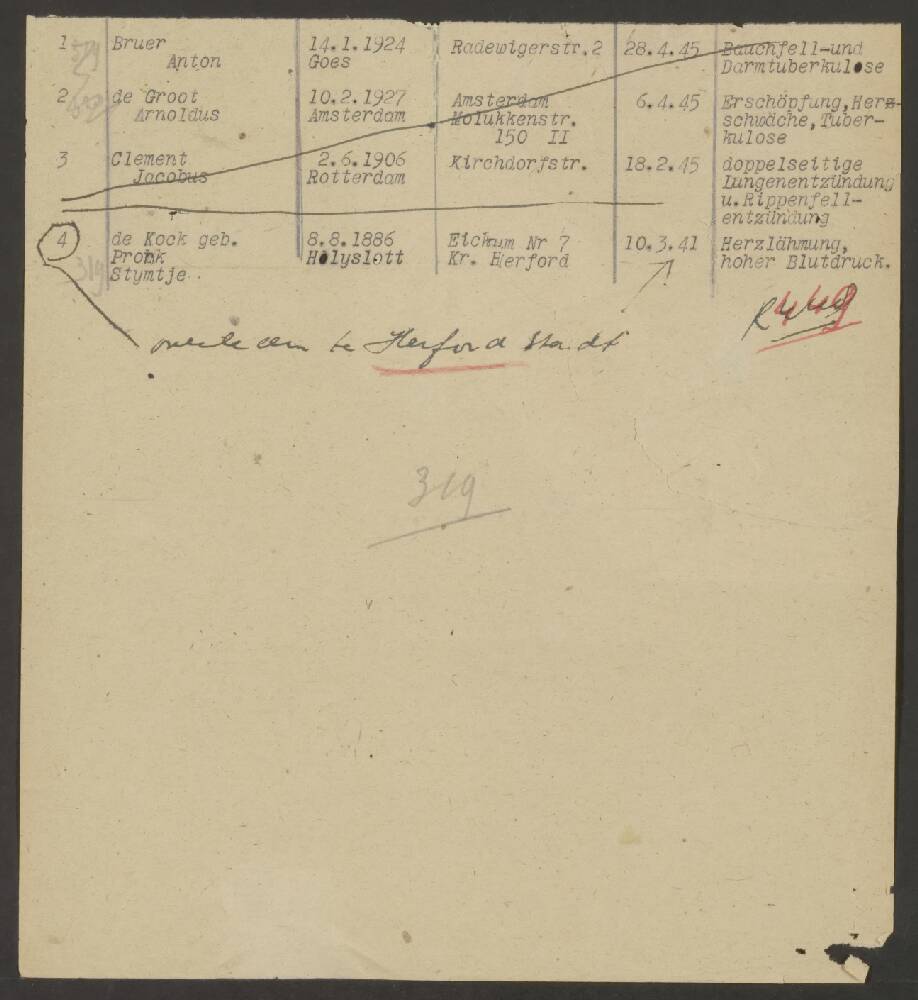 1 Bruer 14.1.1924 Radewigerstr.2 28.4.45 Bauchfell-und
Anton Goes Darmtuberkulose
2 de Groot 10.2.1927 Amsterdam 6.4.45 Erschöpfung,Herz-
Arnoldus Amsterdam Molukkenstr. schwäche,Tuber-
150 II kulose
3 Clement 2.6.1906 Kirchdorfstr. 18.2.45 doppelseitige
Jacobus Rotterdam Lungenentzündung
u.Rippenfell-
entzündung
4 de Kock geb. 8.8.1886 Eickum Nr 7 10.3.41 Herzlähmung,
Pronk Holyslott Kr. Herford hoher Blutdruck.
319 Stymtje
R449
overleden te Herford Stadt
319